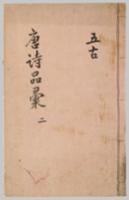 五古
唐诗品彙
二